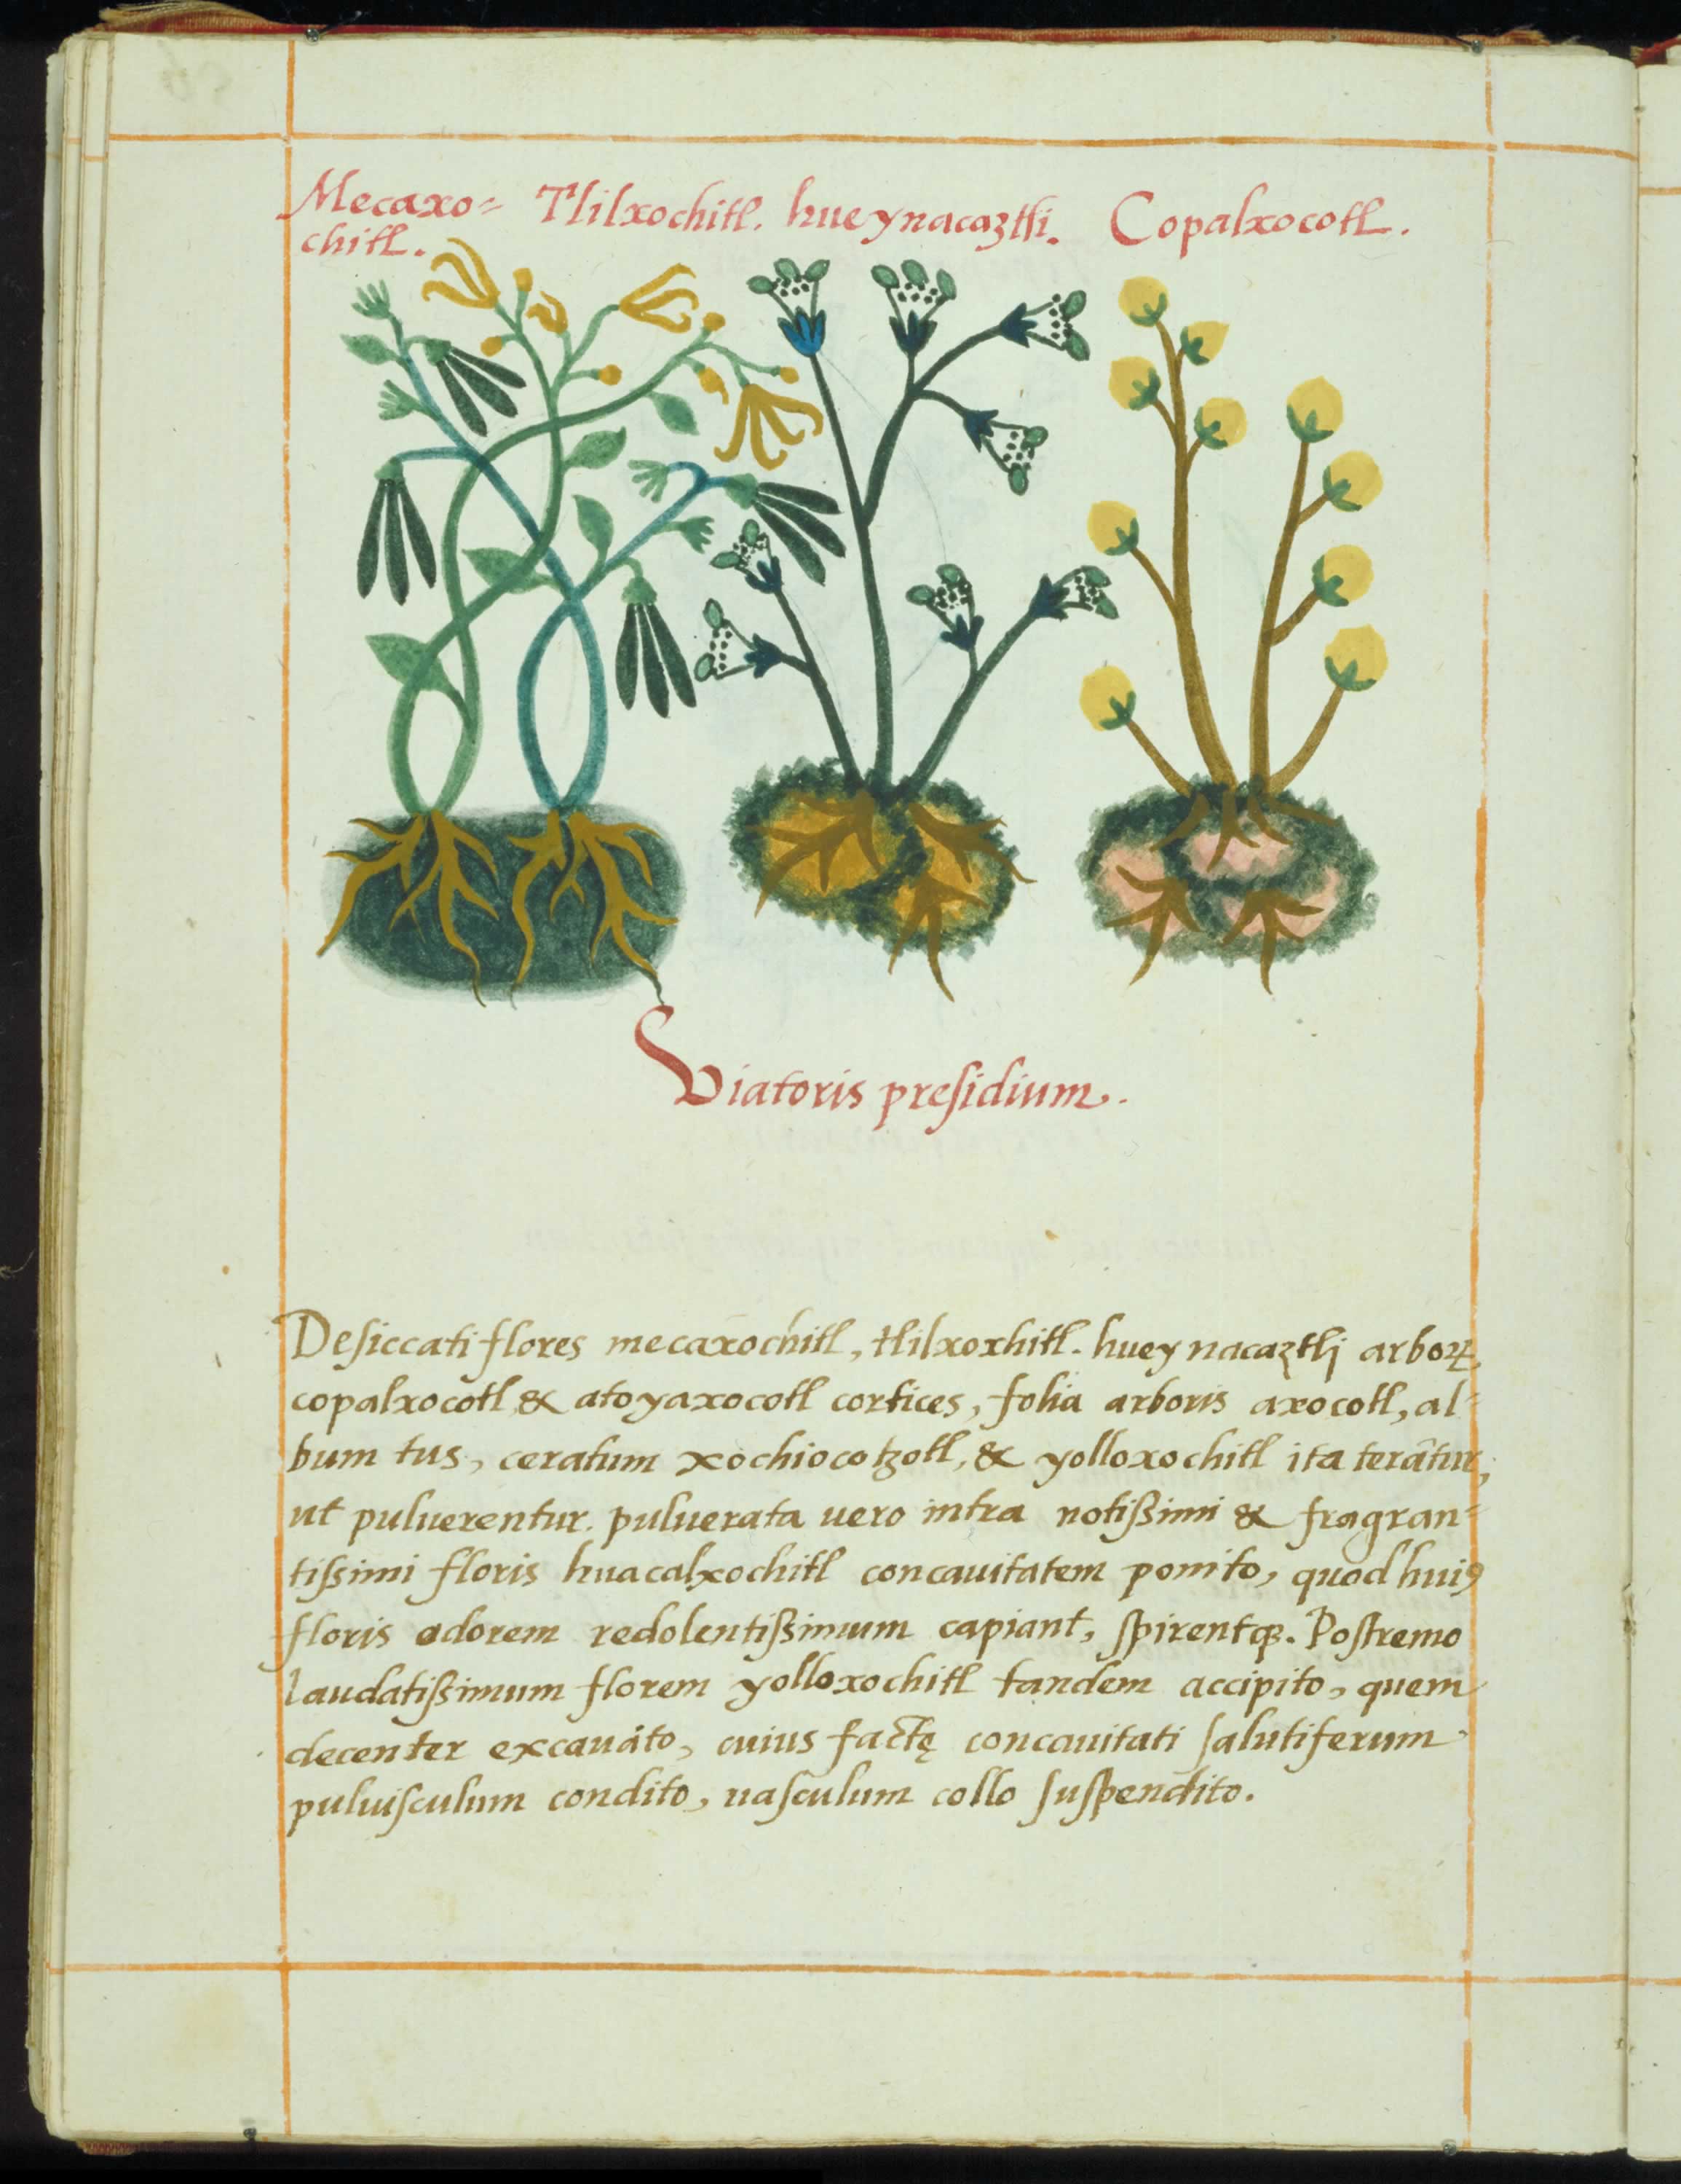 Mecaxo= Tlilxochitl. hueynacaztli. Copalxocotl.
chitl.
Viatoris presidium.
Desiccati flores mecaxochitl, tlilxoxhitl. huey nacaztlj arboꝝ
copalxocotl & atoyaxocotl cortices, folia arboris axocotl, al=
bum tus, ceratum xochiocotzotl, & yolloxochitl ita terãtur,
ut puluerentur. puluerata uero intra notißimi & fragran=
tißimi floris huacalxochitl concauitatem ponito, quod huiꝰ
floris odorem redolentißimum capiant, spirentqꝫ. Postremo
laudatißimum florem yolloxochitl tandem accipito, quem
decenter excauáto, cuius factę concauitati salutiferum
puluisculum condito, uasculum collo suspendito.